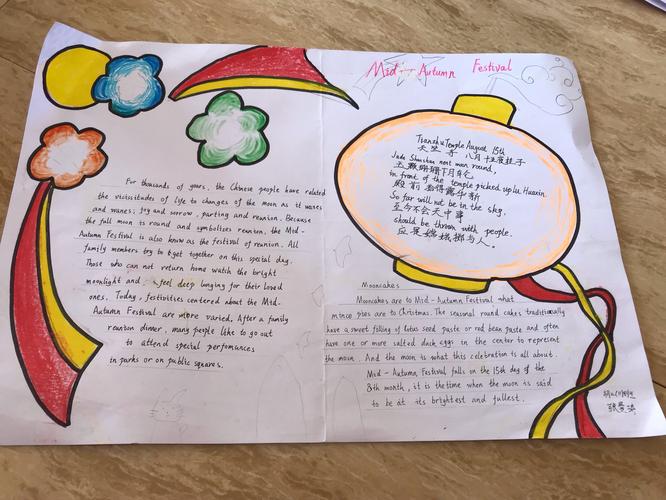 Mid-Autumn Festival
For thousands of years, the Chinese people have related
the vicissitudes of life to changes of the moon as it waxes
and wanes; joy and sorrow, parting and reunion. Because
the full moon is round and symbolizes reunion, the Mid-
Autumn Festival is also know as the festival of reunion. All
family members try to get together on this special day.
Those who can not return home watch the bright
moonlight and feel deep longing for their loved
ones. Today, festivities centered about the Mid-
Autumn Festival are more varied. After a family
reunion dinner, many people like to go out
to attend special perfomances
in parks or on public squares.
Tianzhu Temple August 15th
天竺寺八月十五夜桂子
Jade Shanshan next moon round,
玉颗珊珊下月轮
in front of the temple picked up lu Huaxin.
殿前拾得露华新
So far will not be in the sky,
至今不会天中事
should be thrown with people.
应是嫦娥掷与人。
Mooncakes
Mooncakes are to Mid-Autumn Festival what
mince pies are to Christmas. The seasonal round cakes traditionally
have a sweet filling of lotus seed paste or red bean paste and often
have one or more salted duck eggs in the center to represent
the moon. And the moon is what this celebration is all about.
Mid-Autumn Festival falls on the 15th day of the
8th month, it is the time when the moon is said
to be at its brightest and fullest.